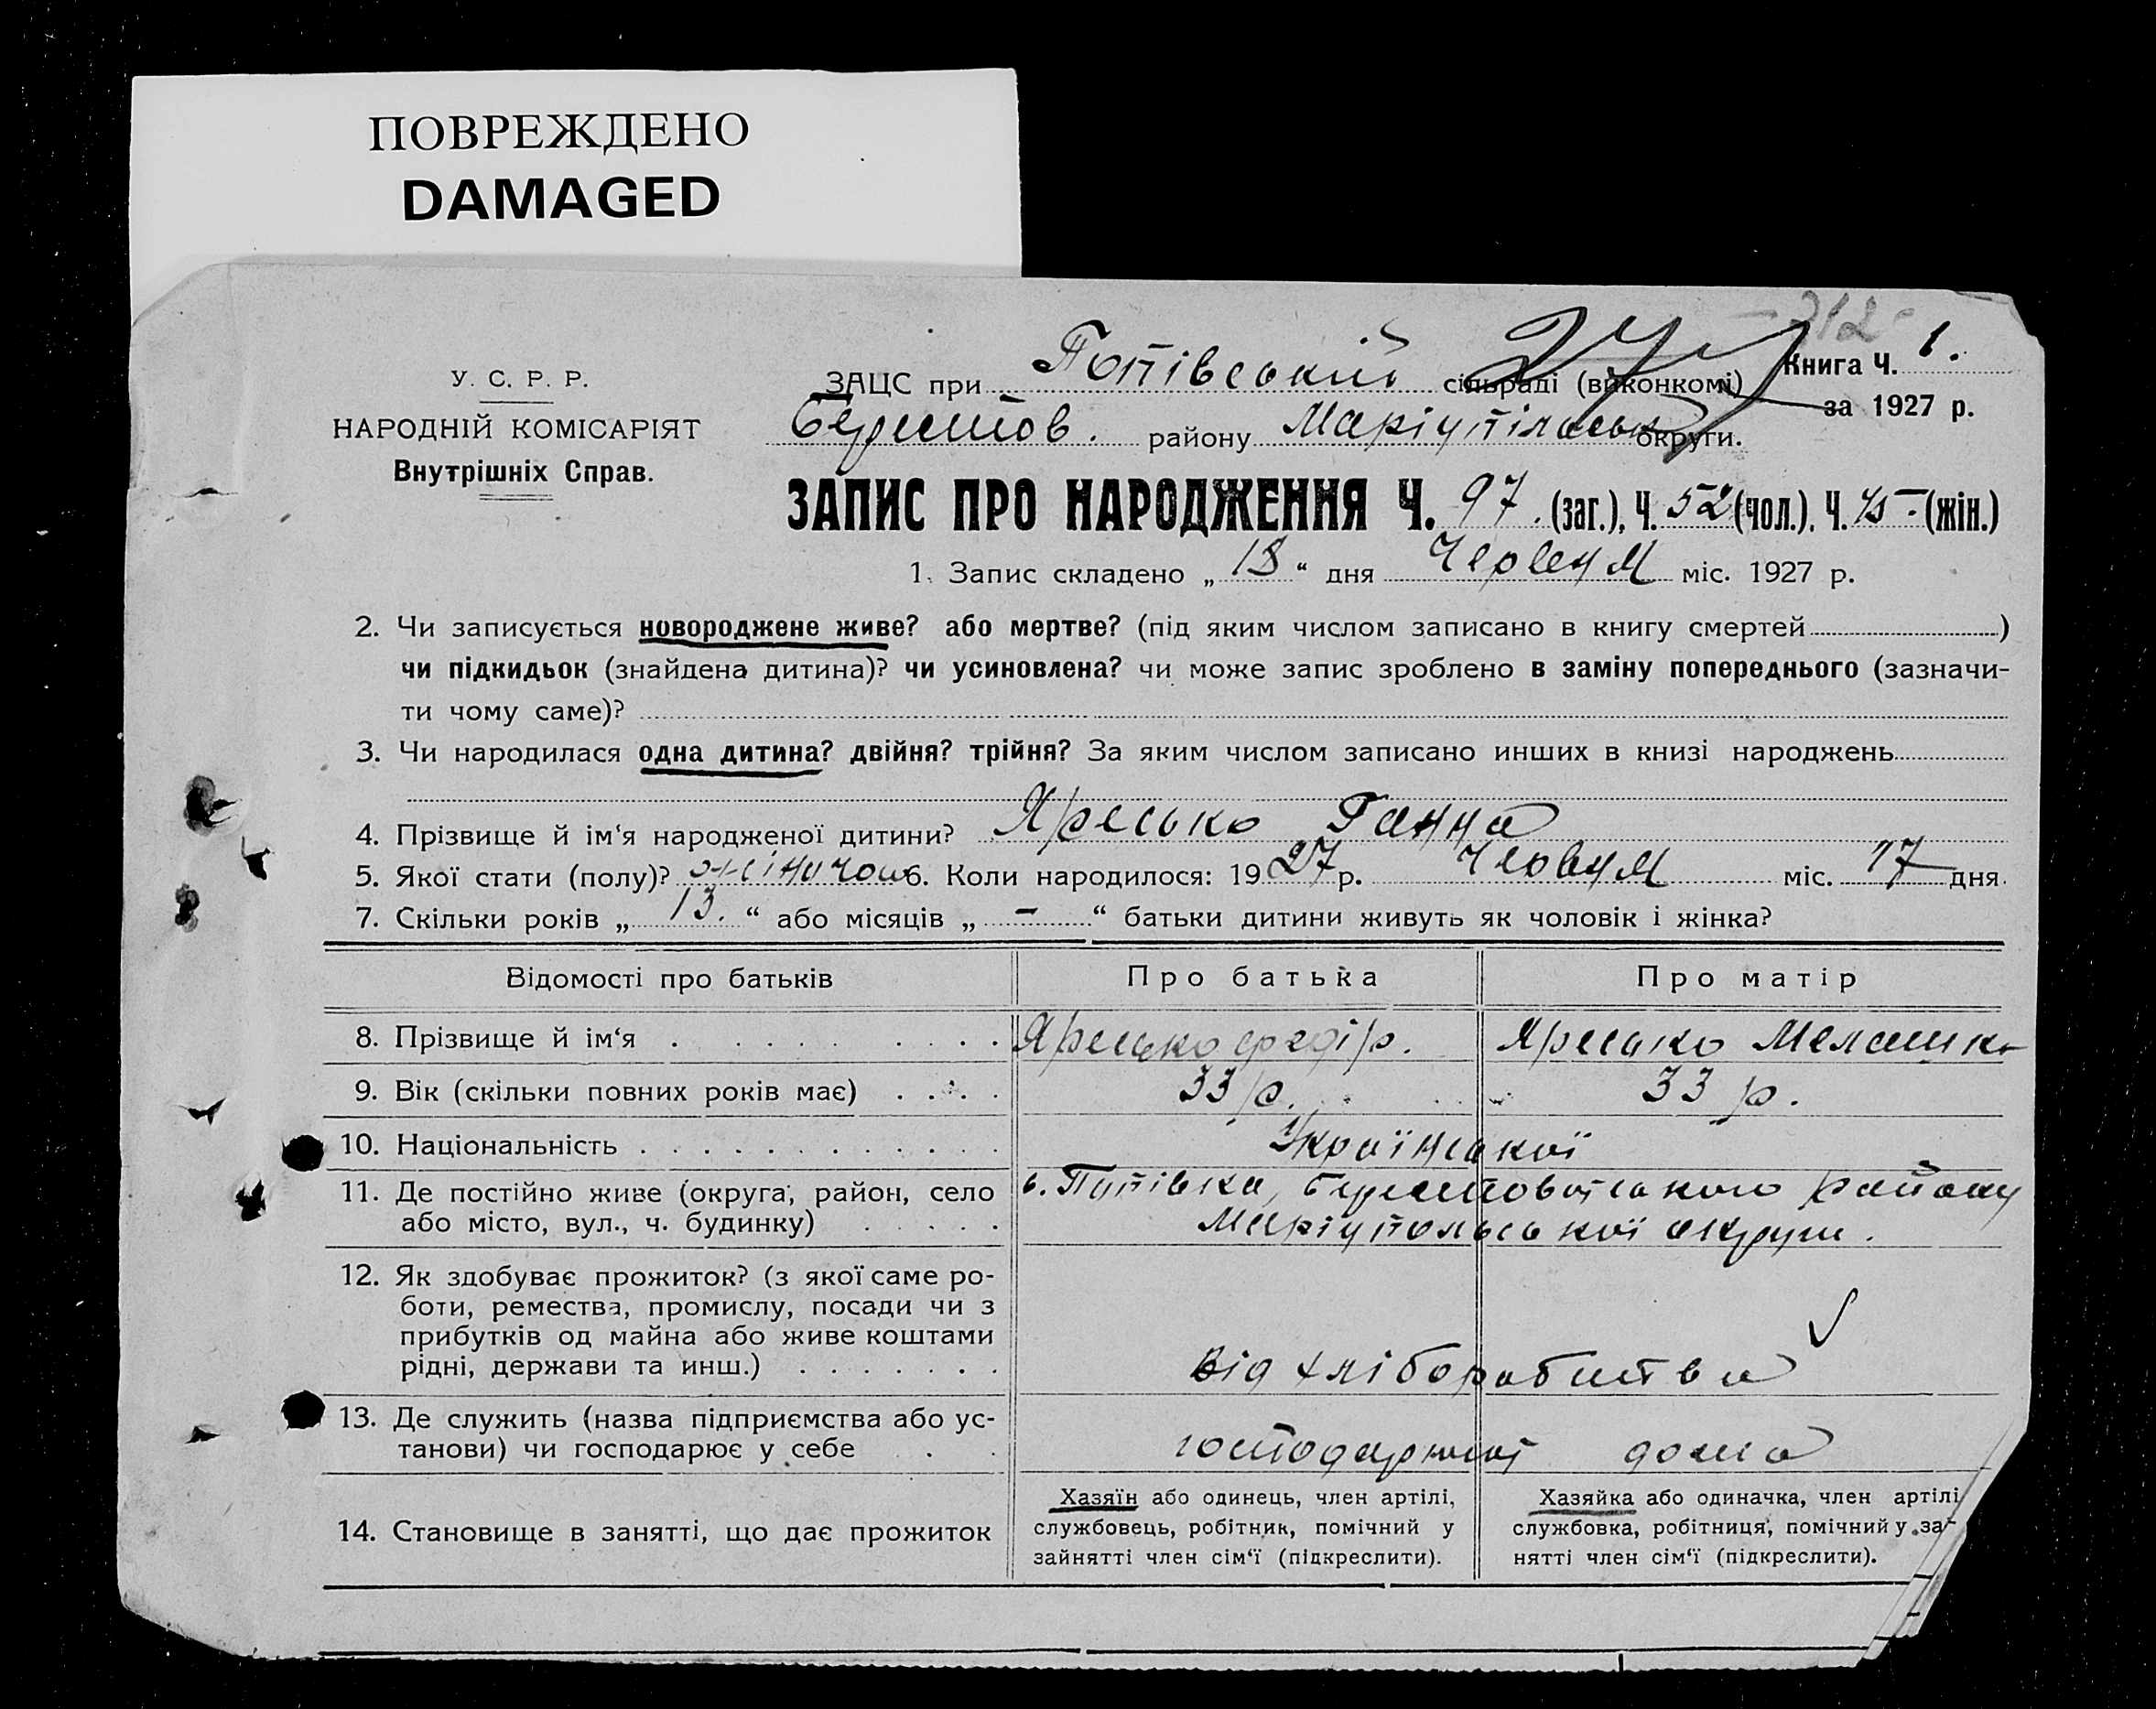 ПОВРЕЖДЕНО
DAMAGED
У. С. Р. Р.
НАРОДНІЙ КОМІСАРІЯТ
Внутрішніх Справ.
312
ЗАЦС при Попівській сільраді (виконкомі)
Берестов. району Маріупільськ округи.
Книга Ч. 1.
за 1927 р.
ЗАПИС ПРО НАРОДЖЕННЯ Ч. 97. (заг.), Ч. 52 (чол.), Ч. 45 - (жін.)
1. Запис складено „ 18 “ дня Червня міс. 1927 р.
2. Чи записується новороджене живе? або мертве? (під яким числом записано в книгу смертей )
чи підкидьок (знайдена дитина)? чи усиновлена? чи може запис зроблено в заміну попереднього (зазначи-
ти чому саме)?
3. Чи народилася одна дитина? двійня? трійня? За яким числом записано инших в книзі народжень
4. Прізвище й ім‘я народженої дитини? Яресько Ганна
5. Якої стати (полу)? жіночої 6. Коли народилося: 1927 р. Червня міс. 17 дня
7. Скільки років „ 13. “ або місяців „ - “ батьки дитини живуть як чоловік і жінка?
Відомості про батьків Про батька Про матір
8. Прізвище й ім‘я Яресько Федір. Яресько Мелашка
9. Вік (скільки повних років має) 33 р. 33 р.
10. Національність Української
11. Де постійно живе (округа, район, село с. Попівка, Берестовського району
або місто, вул., ч. будинку) Маріупольської округи.
12. Як здобуває прожиток? (з якої саме ро-
боти, ремества, промислу, посади чи з
прибутків од майна або живе коштами
рідні, держави та инш.) Від хліборобства
13. Де служить (назва підприємства або ус-
танови) чи господарює у себе дома
14. Становище в занятті, що дає прожиток
Хазяїн або одинець, член артілі,
службовець, робітник, помічний у
зайнятті член сім‘ї (підкреслити).
Хазяйка або одиначка, член артілі
службовка, робітниця, помічний у за-
нятті член сім‘ї (підкреслити).